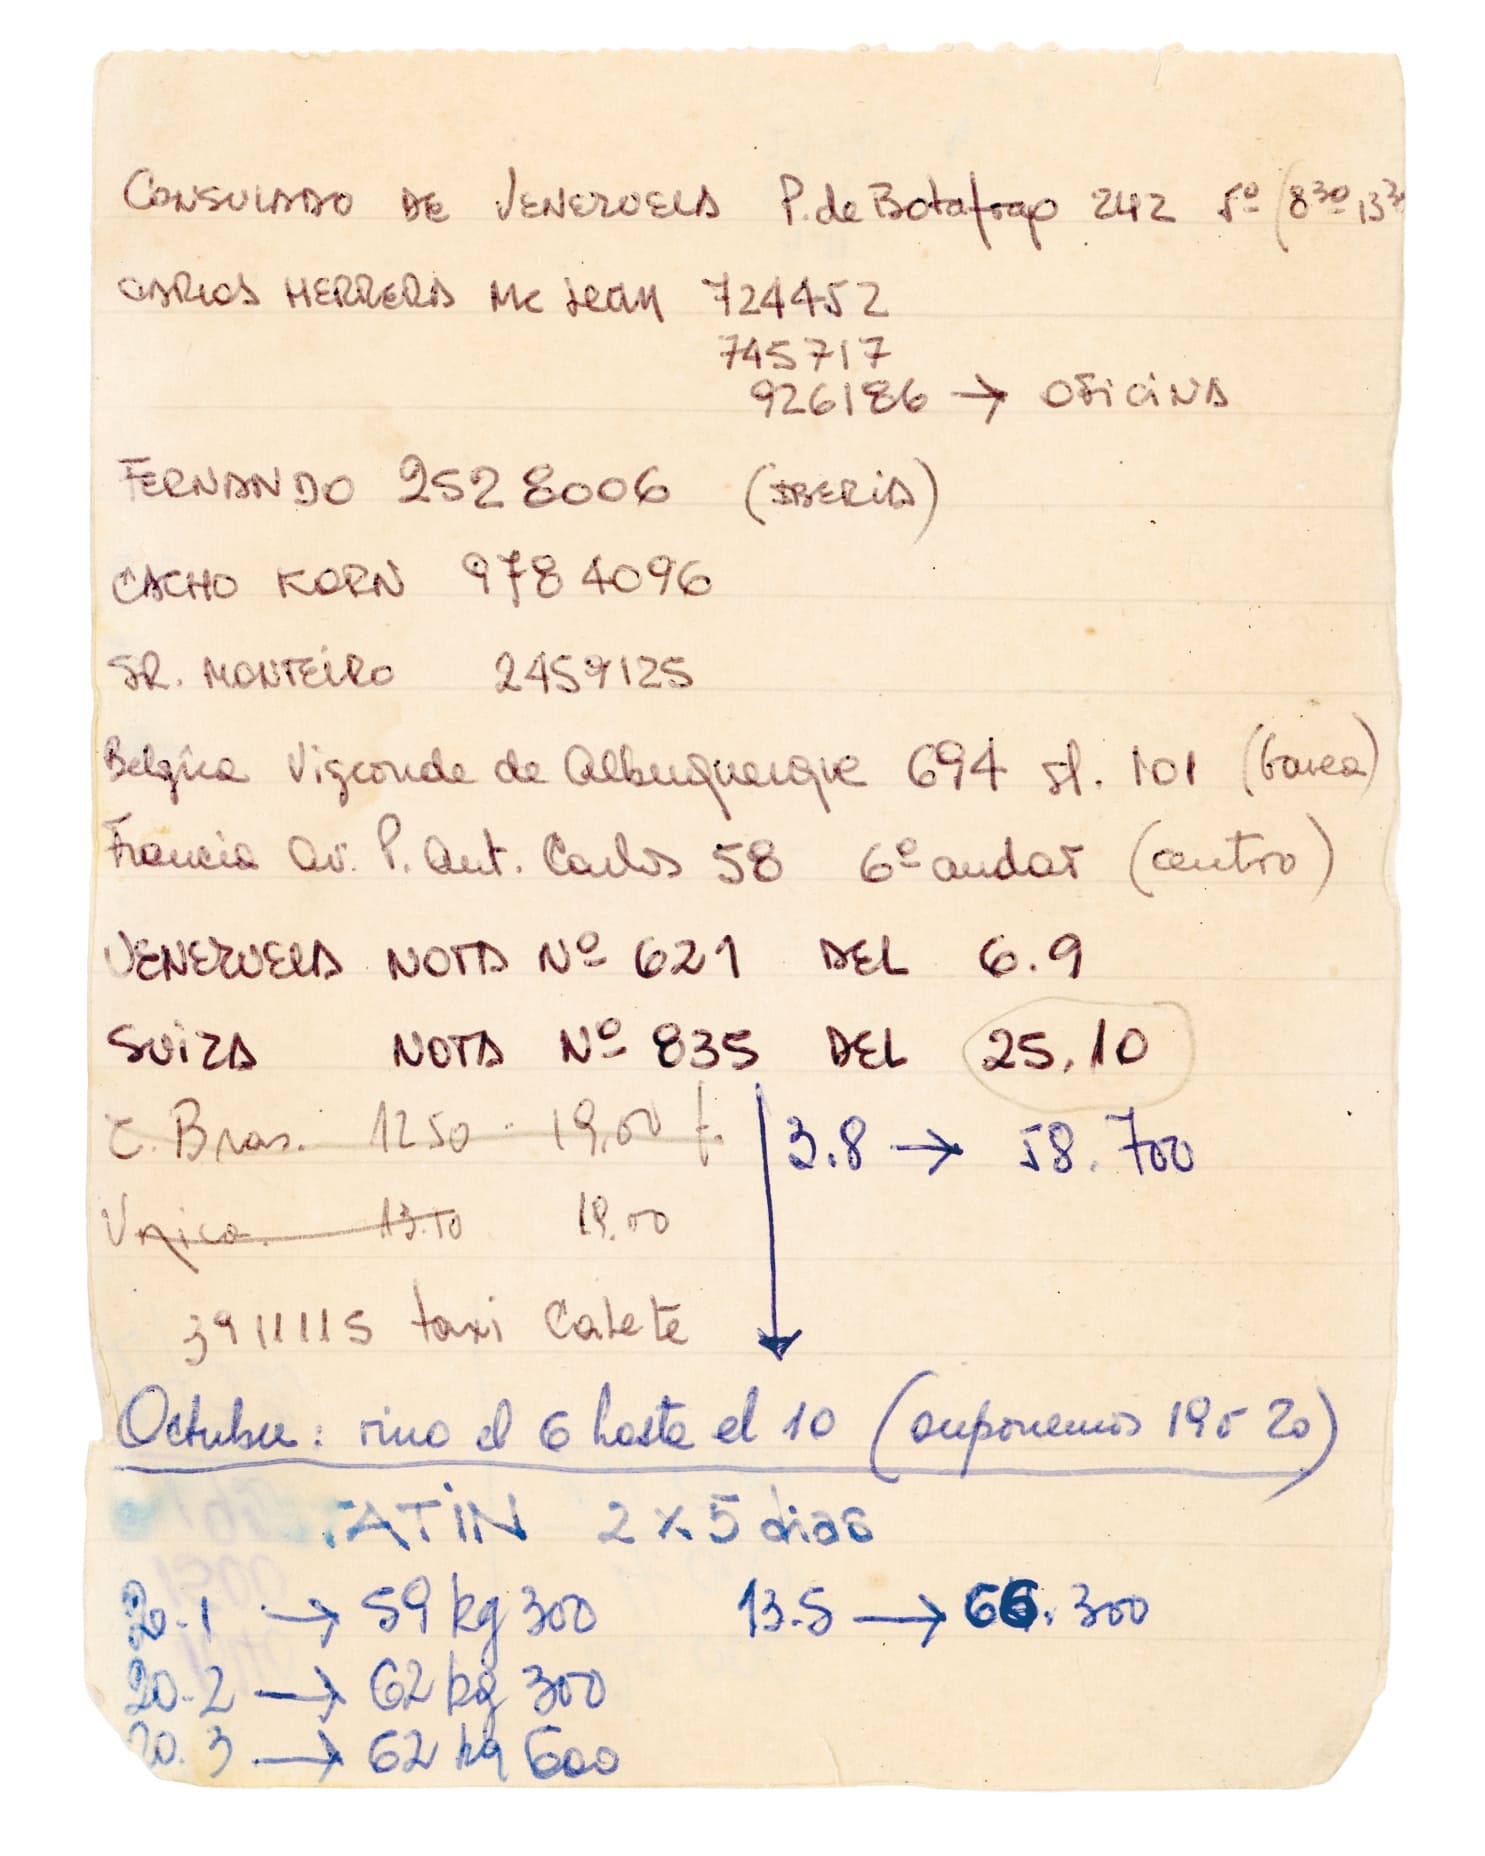 CONSULADO DE VENEZUELA P. de Botafogo 242 5º (8³⁰ 13³⁰
CARLOS HERRERA Mc Lean 724452
745717
926186 → OFICINA
FERNANDO 2528006 (IBERIA)
CACHO KORN 9784096
SR. MONTEIRO 2459125
Belgica Visconde de Albuquerque 694 sl. 101 (Gavea)
Francia Av. P. Ant. Carlos 58 6º andar (centro)
VENEZUELA NOTA Nº 621 DEL 6.9
SUIZA NOTA Nº 835 DEL 25.10
C. Bras. 1250 - 19,00 f.
3.8 → 58.700
Unica. 13.10 19.00
3911115 taxi Catete
Octubre: sino el 6 hasta el 10 (suponemos 19 o 20)
TATIN 2 x 5 dias
20.1 → 59 kg 300 13.5 → 66.300
20-2 → 62 kg 300
20.3 → 62 kg 600